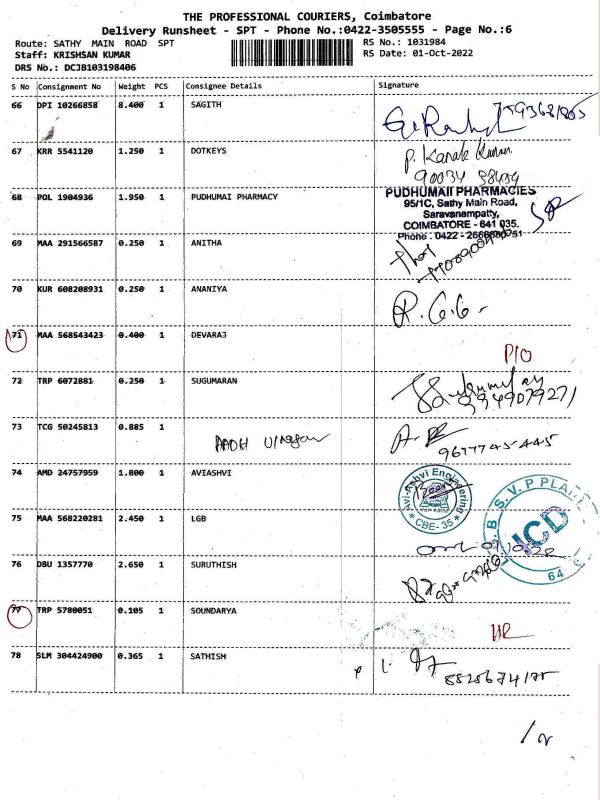 THE PROFESSIONAL COURIERS, Coimbatore
Delivery Runsheet - SPT - Phone No.:0422-3505555 - Page No.:6
Route: SATHY MAIN ROAD SPT
RS No.: 1031984
Staff: KRISHSAN KUMAR
RS Date: 01-Oct-2022
DRS No.: DCJB103198406
S No Consignment No Weight PCS Consignee Details Signature
66 DPI 10266858 8.400 1 SAGITH
67 KRR 5541120 1.250 1 DOTKEYS P. Kanak Kumar
68 POL 1904936 1.950 1 PUDHUMAI PHARMACY
PUDHUMAII PHARMACIES
95/1C, Sathy Main Road,
Saravanampatty,
COIMBATORE - 641 035.
Phone : 0422 -
69 MAA 291566587 0.250 1 ANITHA
70 KUR 608208931 0.250 1 ANANIYA R. G. G.
71 MAA 568543423 0.400 1 DEVARAJ
P10
72 TRP 6072881 0.250 1 SUGUMARAN
9949079271
73 TCG 50245813 0.885 1 AADH
9677745445
74 AMD 24757959 1.800 1 AVIASHVI
Avi-Ashvi Engineering
CBE- 35
75 MAA 568220281 2.450 1 LGB
B.S.V.P PLAN
ICD
64
76 DBU 1357770 2.650 1 SURUTHISH
77 TRP 5780051 0.105 1 SOUNDARYA
78 SLM 304424900 0.365 1 SATHISH